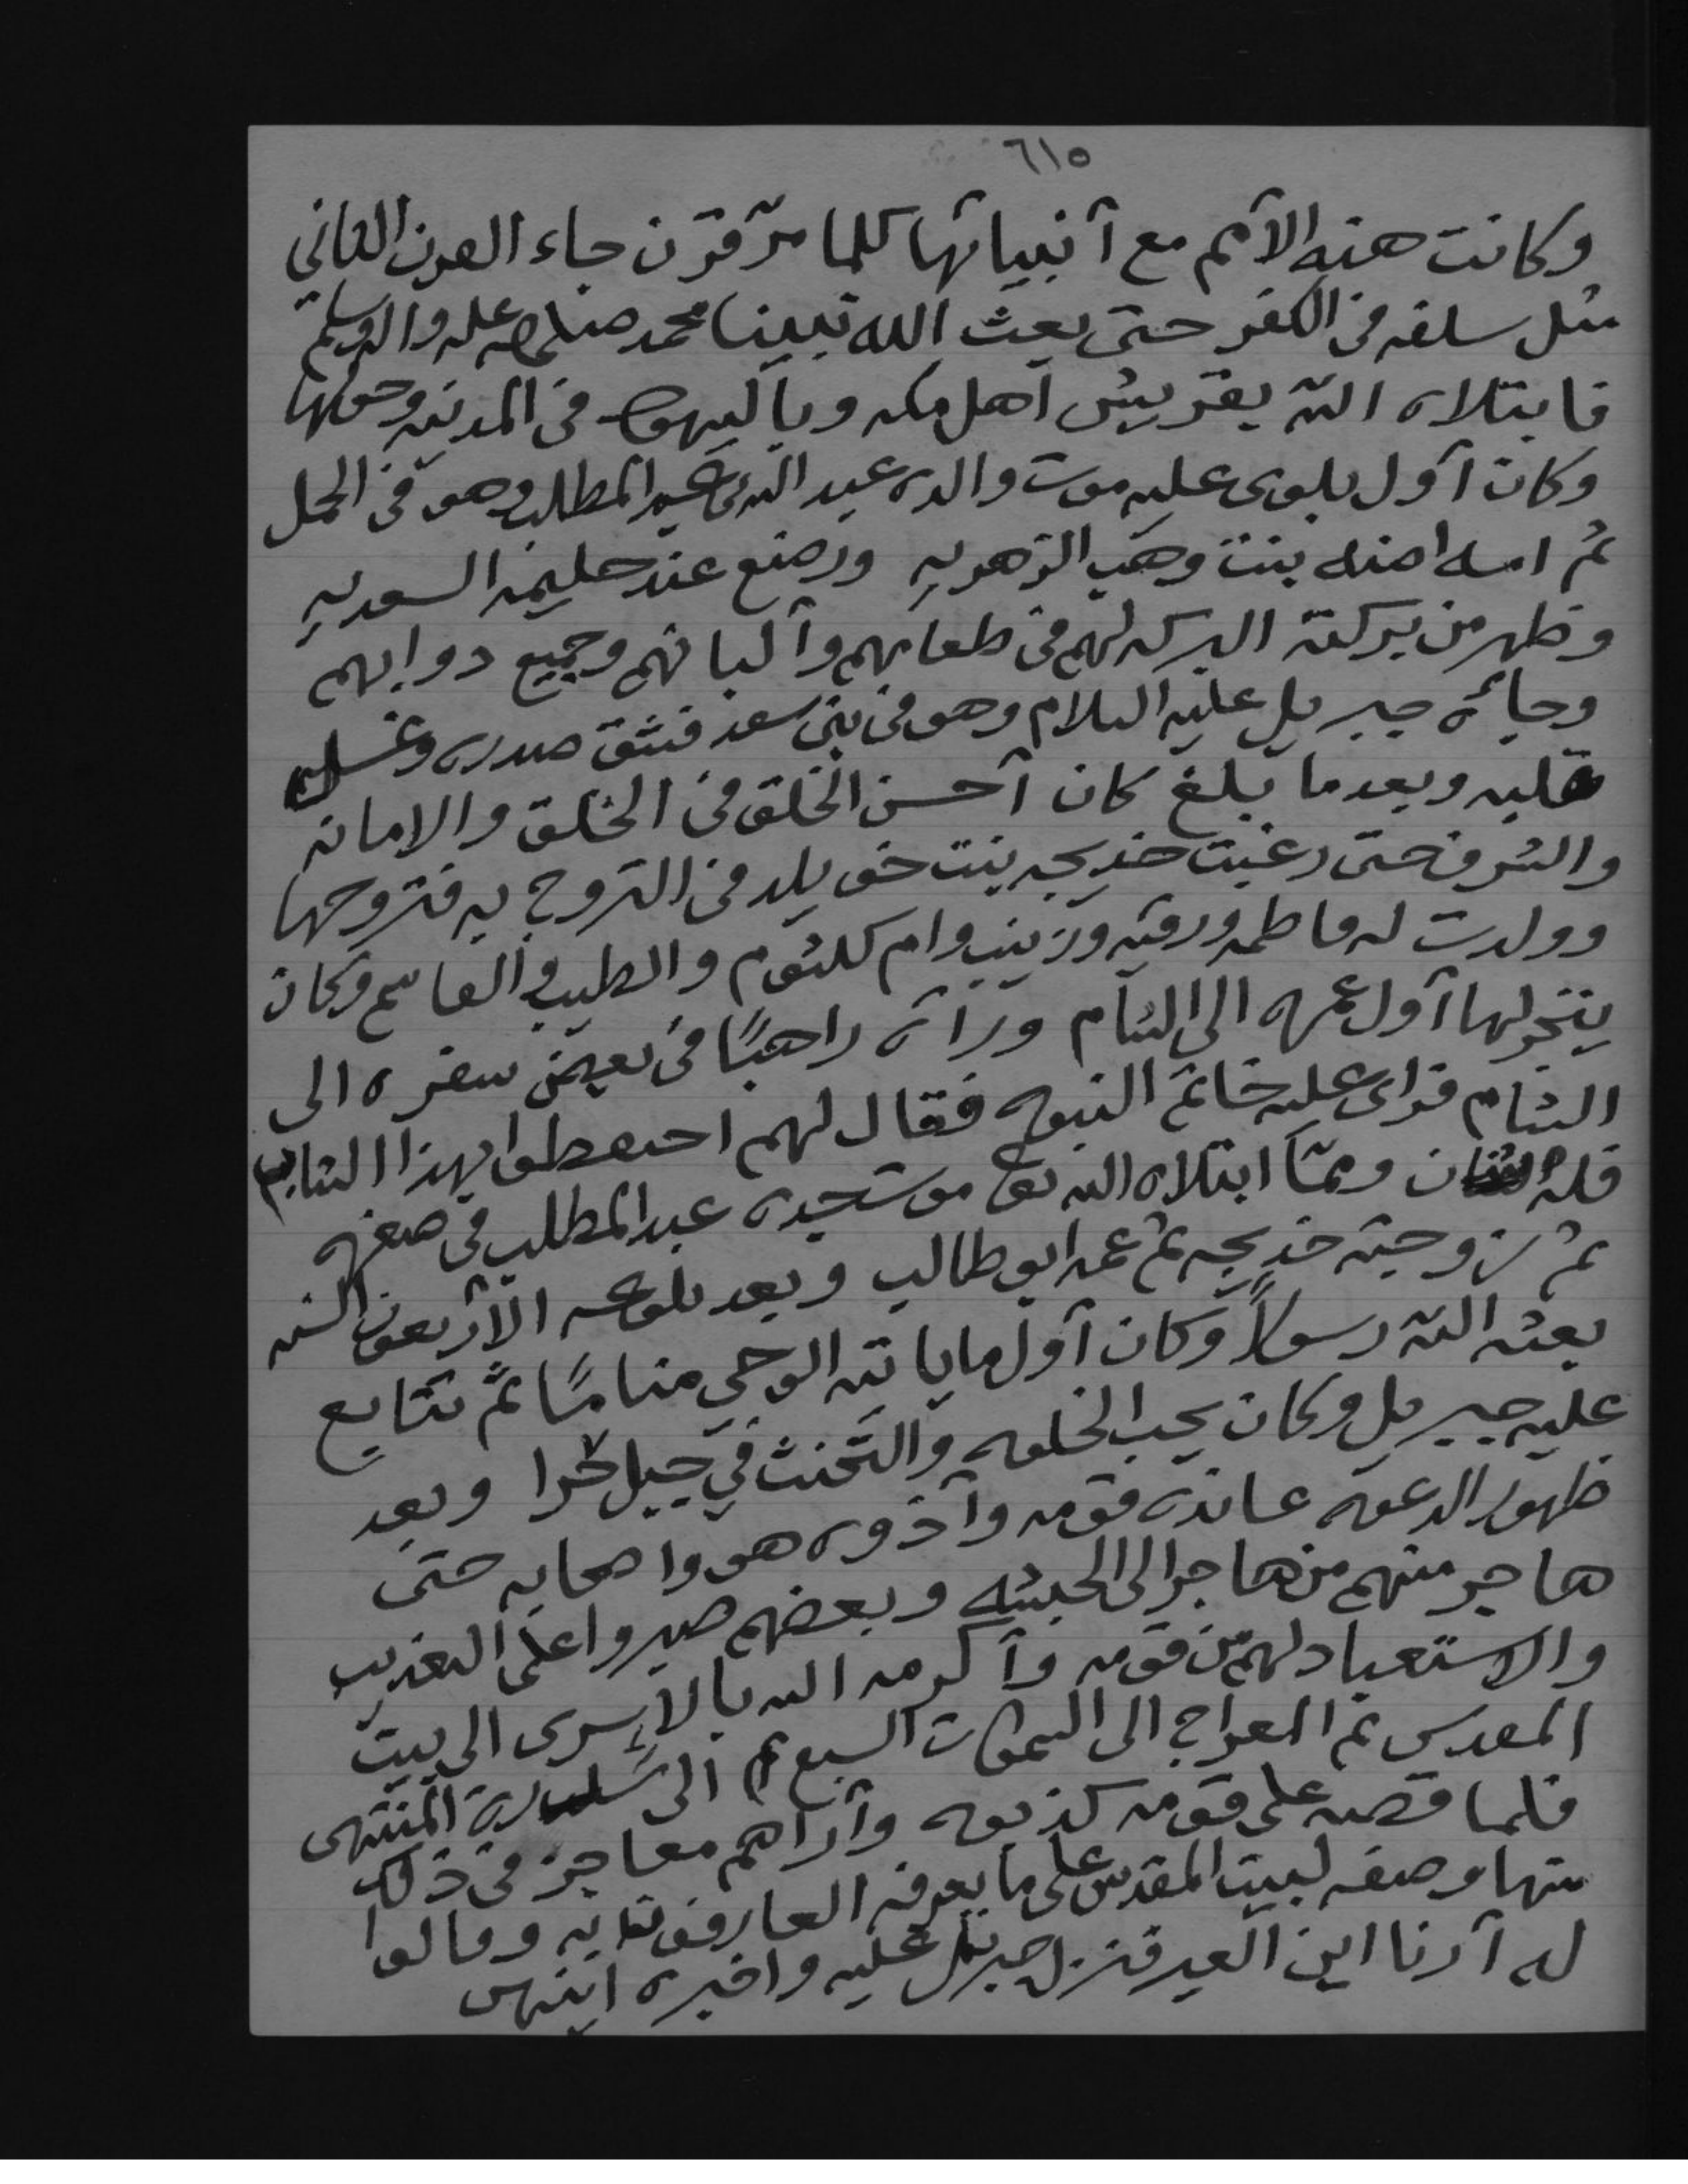 ٦١٥
وكانت هذه الأمم مع أنبيائها كلما مرّ قرن جاء القرن الثاني
مثل سلفه في الكفر حتى بعث الله نبينا محمد صلى الله عليه واله وسلم
فابتلاه الله بقريش أهل مكه وباليهود في المدينه وحولها
وكان أول بلوى عليه موت والده عبد الله بن عبد المطلب وهو في الحمل
ثم امه امنه بنت وهب الزهريه ورضع عند حليمه السعديه
وظهر من بركته البركه لهم في طعامهم وألبانهم وجميع دوابهم
وجائه جبريل عليه السلام وهو في بني سعد فشق صدره وغسل
قلبه وبعدما بلغ كان أحسن الخلق في الخلق والامانه
والشرف حتى رغبت خديجه بنت خويلد في التزوج به فتزوجها
وولدت له فاطمه ورقيه وزينب وام كلثوم والطيب والقاسم وكان
يتجر لها أول عمره الى الشام ورآه راهبًا في بعض سفره الى
الشام فراى عليه خاتم النبوه فقال لهم احتفظوا بهذا الشاب
فله شان وممّا ابتلاه الله به موت جده عبد المطلب في صغره
ثم زوجته خديجه ثم عمه ابو طالب وبعد بلوغه الأربعون السنه
بعثه الله رسولاً وكان أول ما ياتيه الوحي منامًا ثم تتابع
عليه جبريل وكان يحب الخلوه والتحنث في جبل حرا وبعد
ظهور الدعوه عانده قومه وآذوه هو واصحابه حتى
هاجر منهم من هاجر الى الحبشه وبعضهم صبروا على التعذيب
والاستعباد لهم من قومه وأكرمه الله بالإسرى الى بيت
المقدس ثم المعراج الى السموات السبع ثم الى سدرة المنتهى
فلما قصه على قومه كذبوه وأراهم معاجز في ذلك
منها وصفه لبيت المقدس على ما يعرفه العارفون به وقالوا
له أرنا اين العير فنزل جبريل عليه واخبره اينهن